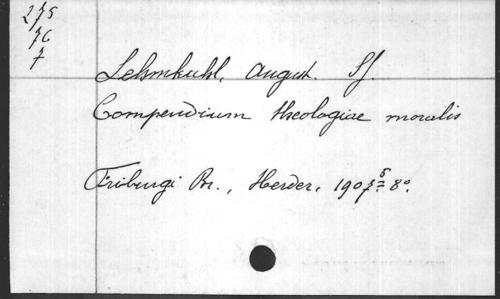 275
76
7
Lehmkuhl, August. SJ.
Compendium theologiae moralis
Friburgi Br., Herder, 1907⁵ 8°.